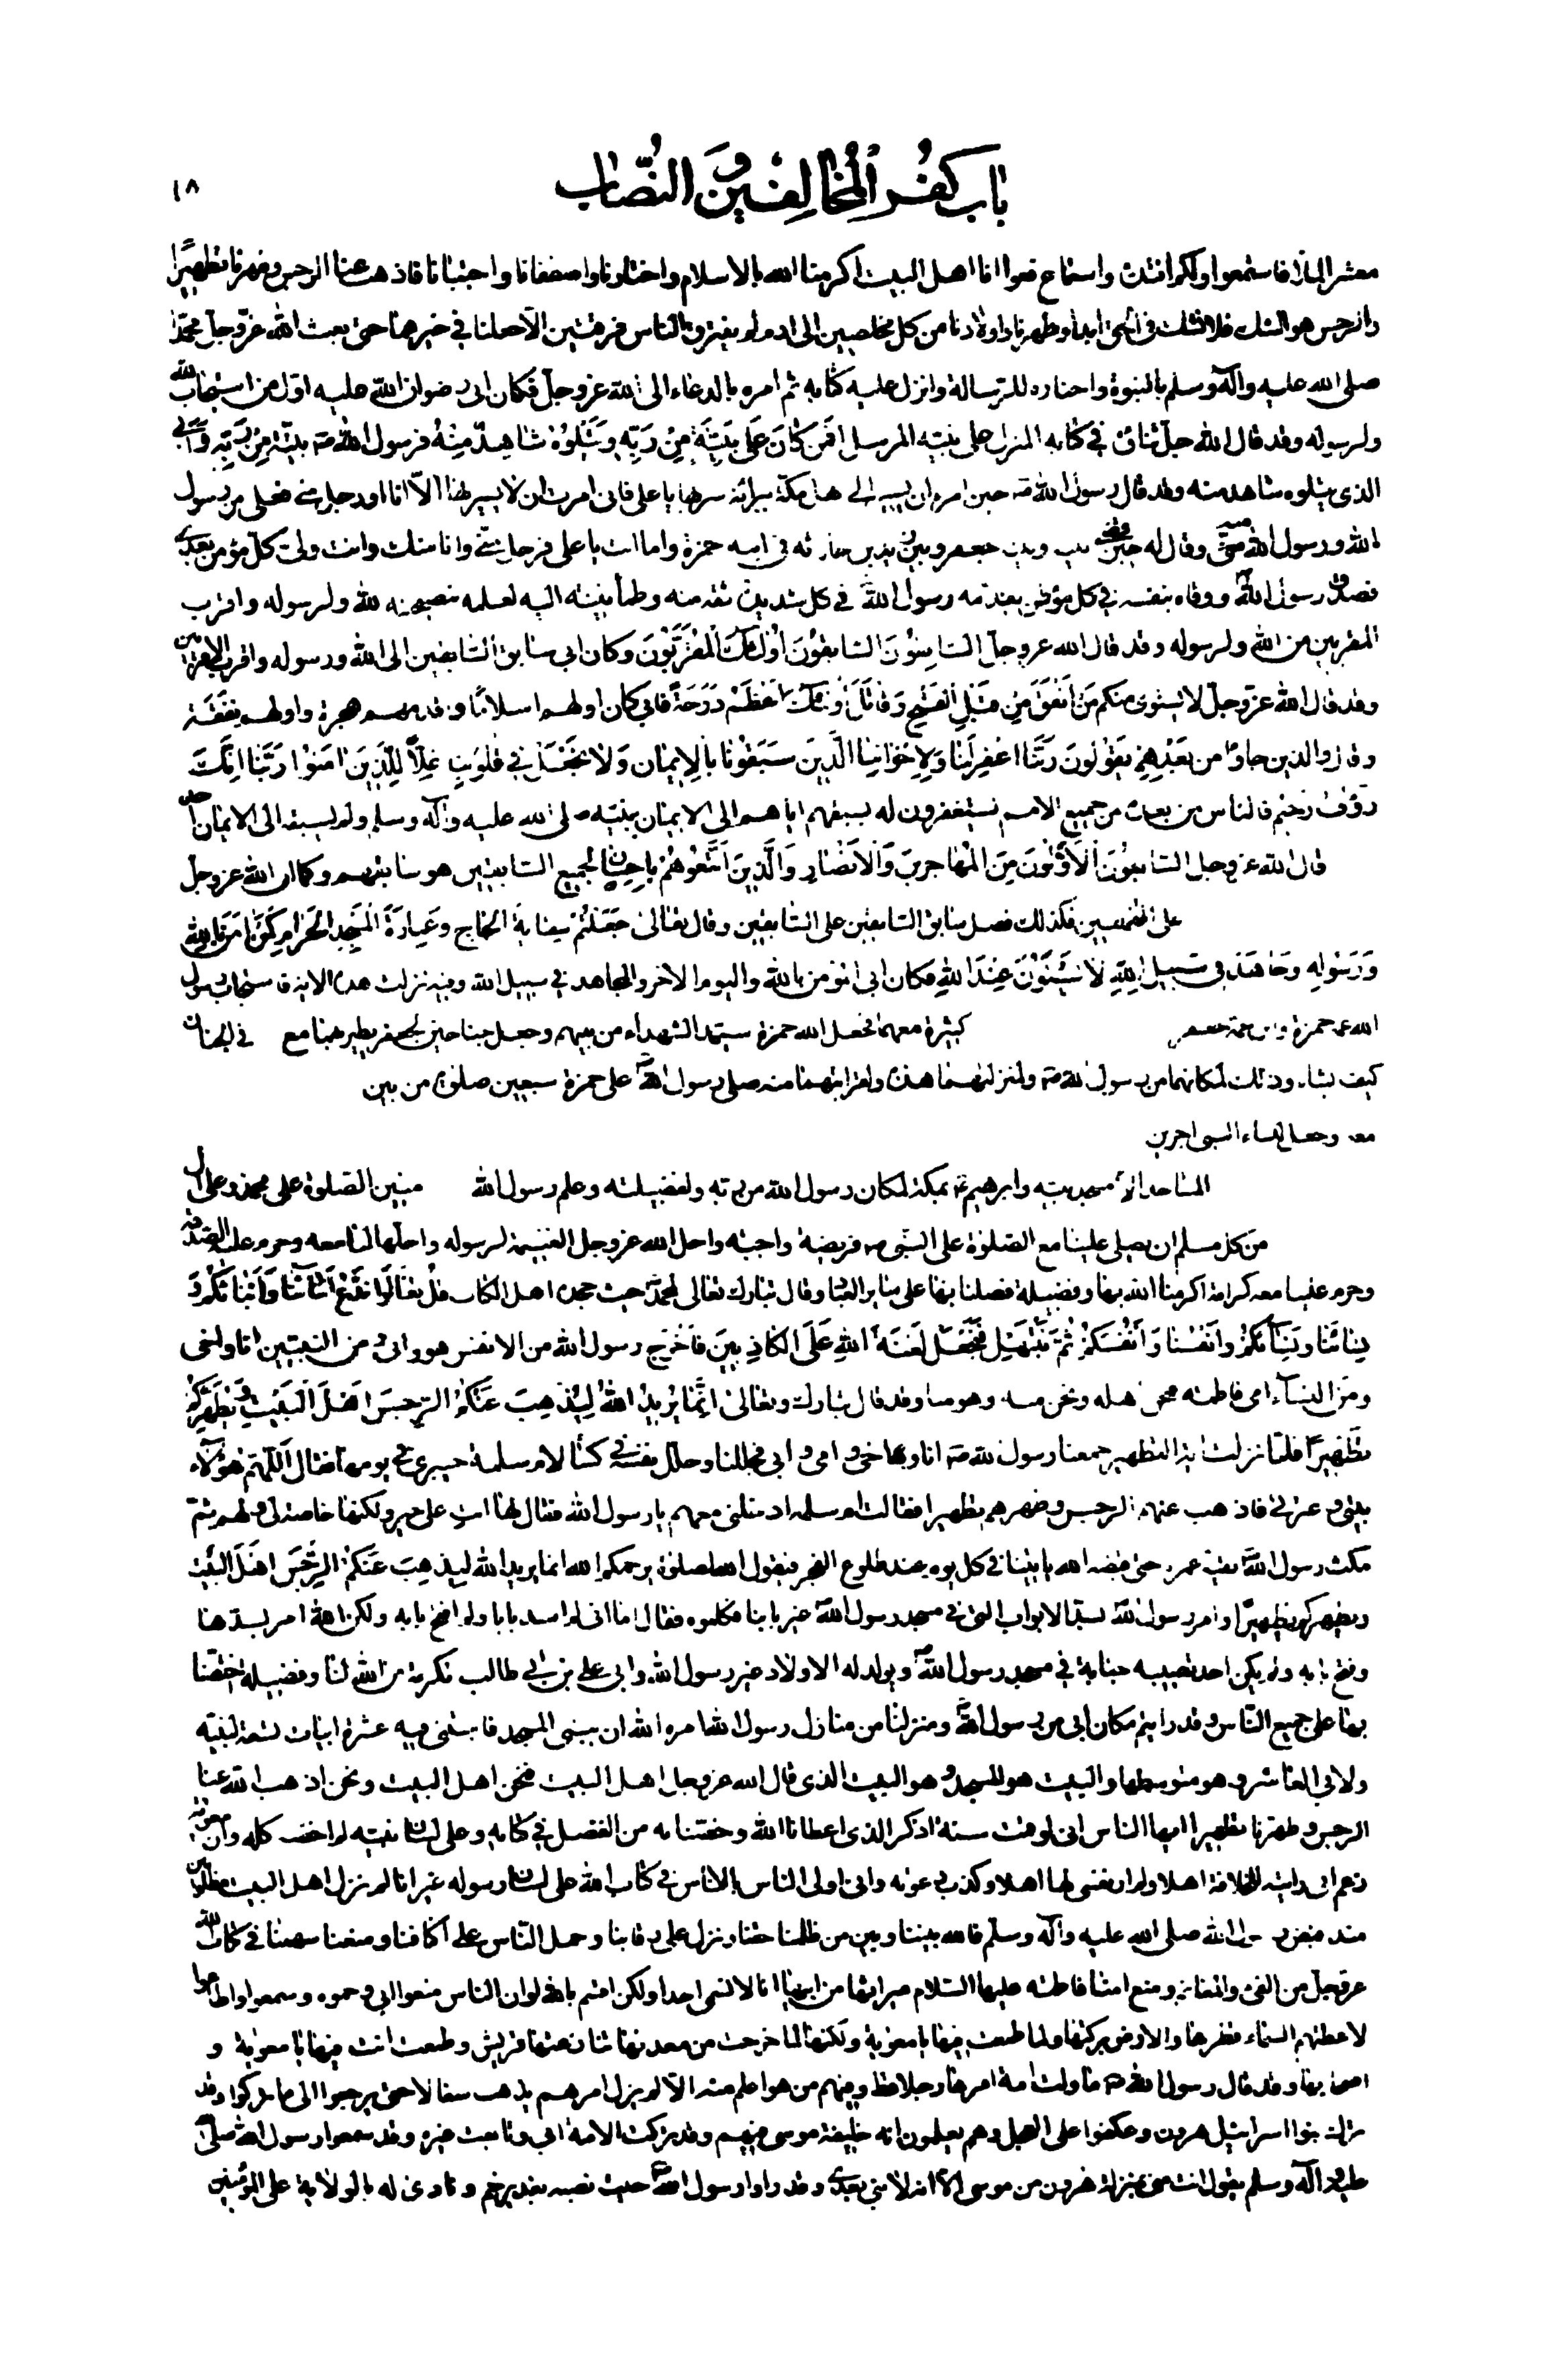 باب كفر المخالفين و النصاب
١٨
معشر الملأ فاستمعوا ولكم افئدة واسماع فعوا انا اهل البيت اكرمنا الله بالاسلام واختارنا واصطفانا واجتبانا فاذهب عنا الرجس وطهرنا تطهيرا
والرجس هو الشك فلا نشك في الحق ابدا وطهرنا واولادنا من كل مخلصين الى ادم لم يفترق الناس فرقتين الا جعلنا في خيرهما حتى بعث الله عز وجل محمدا
صلى الله عليه واله وسلم بالنبوة واختاره للرسالة وانزل عليه كتابه ثم امره بالدعاء الى الله عز وجل فكان ابي رضوان الله عليه اول من استجاب لله
ولرسوله وقد قال الله جل ثناؤه في كتابه المنزل على نبيه المرسل افمن كان على بينة من ربه ويتلوه شاهد منه فرسول الله ص بينة من ربه وابي
الذي يتلوه شاهد منه وقد قال رسول الله ص حين امره ان يسير الى اهل مكة ببرائة سر بها يا علي فاني امرت ان لا يسير بها الا انا او رجل مني فعلي من رسول
الله ورسول الله منه وقال له حين قضى بينه وبين جعفر وبين زيد بن حارثه في ابنه حمزة واما انت يا علي فرجل مني وانا منك وانت ولي كل مؤمن بعدي
فصدق رسول الله ووقاه بنفسه في كل موطن يقدمه رسول الله في كل شديدة ثقه منه وطمأنينة اليه لعلمه بنصيحته لله ولرسوله واقرب
المقربين من الله ولرسوله وقد قال الله عز وجل السابقون السابقون اولئك المقربون وكان ابي سابق السابقين الى الله ورسوله واقرب الاقربين
وقد قال الله عز وجل لا يستوي منكم من انفق من قبل الفتح وقاتل اولئك اعظم درجة فابي كان اولهم اسلاما واقدمهم هجرة واولهم نفقة
وقال والذين جاؤا من بعدهم يقولون ربنا اغفر لنا ولاخواننا الذين سبقونا بالايمان ولا تجعل في قلوبنا غلا للذين امنوا ربنا انك
رؤف رحيم فالناس من بعده من جميع الامم يستغفرون له بسبقهم اياهم الى الايمان بنبيه صلى الله عليه واله وسلم ولم يسبقه الى الايمان احد
قال الله عز وجل السابقون الاولون من المهاجرين والانصار والذين اتبعوهم باحسان لجميع السابقين هو سابقهم وكما ان الله عز وجل
على المتخلفين فكذلك فضل سابق السابقين على السابقين وقال تعالى اجعلتم سقاية الحاج وعمارة المسجد الحرام كمن امن بالله
ورسوله وجاهد في سبيل الله لا يستوون عند الله فكان ابي المؤمن بالله واليوم الاخر والمجاهد في سبيل الله وفيه نزلت هذه الاية فاستجاب رسول
الله عمه حمزة وابن عمه جعفر كثيرة معهما فجعل الله حمزة سيد الشهداء من بينهم وجعل جناحين لجعفر يطير بهما مع في الجنان
كيف يشاء وذلك لمكانهما من رسول الله ص ولمنزلتهما هذه ولقرابتهما منه صلى رسول الله على حمزة سبعين صلوة من بين
معه وجعل لنساء النبي اجرين
المساجد الا مسجد نبيه وابرهيم بمكة لمكان رسول الله من ربه ولفضيلته وعلم رسول الله منين الصلوة على محمد وعلى ال
من كل مسلم ان يصلي علينا مع الصلوة على النبي ص فريضة واجبة واحل الله عز وجل الغنيمة لرسوله واحلها لنا معه وحرم عليه الصدقة
وحرم علينا معه كرامة اكرمنا الله بها وفضيلة فضلنا بها على سائر العباد وقال تبارك تعالى لمحمد حيث جحده اهل الكتاب قل تعالوا ندع ابنائنا وابنائكم و
نسائنا ونسائكم وانفسنا وانفسكم ثم نبتهل فنجعل لعنة الله على الكاذبين فاخرج رسول الله من الانفس هو وابي ومن البنين انا واخي
ومن النساء امي فاطمه فنحن اهله ونحن منه وهو منا وقد قال تبارك وتعالى انما يريد الله ليذهب عنكم الرجس اهل البيت ويطهركم
تطهيرا فلما نزلت اية التطهير جمعنا رسول الله ص انا واخي وامي وابي فجللنا وجلل نفسه في كساء لام سلمة خيبري في يومها فقال اللهم هؤلاء
بيتي وعترتي فاذهب عنهم الرجس وطهرهم تطهيرا فقالت ام سلمه ادخلني معهم يا رسول الله فقال لها انت على خير ولكنها خاصة لي ولهم ثم
مكث رسول الله بقية عمره حتى قبضه الله ياتينا في كل يوم عند طلوع الفجر فيقول الصلوة يرحمكم الله انما يريد الله ليذهب عنكم الرجس اهل البيت
ويطهركم تطهيرا وامر رسول الله بسد الابواب التي في مسجد رسول الله غير بابنا فكلموه فقال اما اني لم اسد بابا ولم افتح بابه ولكن الله امر بسدها
وفتح بابه ولم يكن احد تصيبه جنابة في مسجد رسول الله ويولد له الاولاد غير رسول الله وابي علي بن ابي طالب تكرمة من الله لنا وفضيلة اختصنا
بها على جميع الناس وقد رايتم مكان ابي من رسول الله ومنزلنا من منازل رسول الله امره الله ان يبني المسجد فابتنى فيه عشرة ابيات تسعة لنبيه
ولابي العاشر وهو متوسطها والبيت هو المسجد وهو البيت الذي قال الله عز وجل اهل البيت فنحن اهل البيت ونحن اذهب الله عنا
الرجس وطهرنا تطهيرا ايها الناس اني لو قمت سنة اذكر الذي اعطانا الله وخصنا به من الفضل في كتابه وعلى لسان نبيه لم احصه كله وان معوية
زعم اني رايته للخلافة اهلا ولم ار نفسي لها اهلا وكذب دعوته واني اولى الناس بالناس في كتاب الله على لسان رسوله غير انا لم نزل اهل البيت مظلومين
منذ قبض رسول الله صلى الله عليه واله وسلم فالله بيننا وبين من ظلمنا حقنا ونزل على رقابنا وحمل الناس على اكتافنا ومنعنا سهمنا في كتاب الله
عز وجل من الفيء والغنائم ومنع امنا فاطمة عليها السلام ميراثها من ابيها انا لا نسمي احدا ولكن اقسم بالله لو ان الناس منعوا ابي وحموه وسمعوا واطاعوا
لاعطتهم السماء قطرها والارض بركتها ولما طمعت فيها يا معوية ولكنها لما خرجت من معدنها تنازعتها قريش وطمعت انت فيها يا معوية و
اصحابها وقد قال رسول الله ص ما ولت امة امرها رجلا قط وفيهم من هو اعلم منه الا لم يزل امرهم يذهب سفالا حتى يرجعوا الى ما تركوا وقد
تركت بنوا اسرائيل هرون وعكفوا على العجل وهم يعلمون انه خليفة موسى فيهم وقد تركت الامة ابي وتابعت غيره وقد سمعوا رسول الله صلى
عليه واله وسلم يقول انت مني بمنزلة هرون من موسى الا انه لا نبي بعدي وقد راوا رسول الله حيث نصبه بغدير خم ونادى له بالولاية على المؤمنين